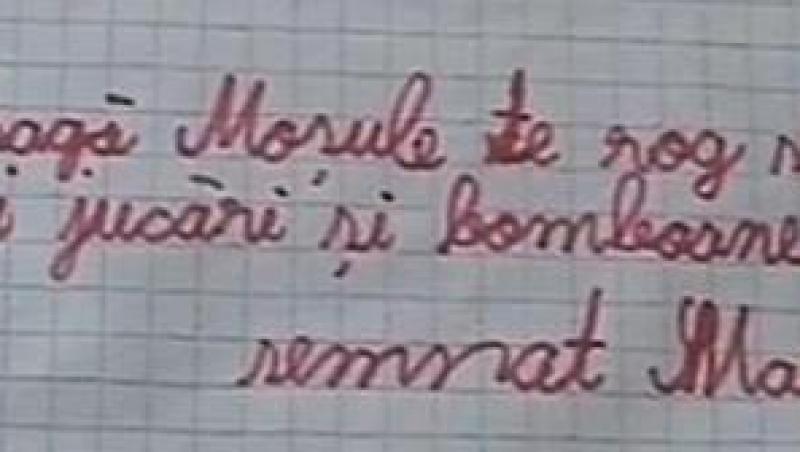 ragă Moșule te rog s
i jucări și bomboane
semnat Ma